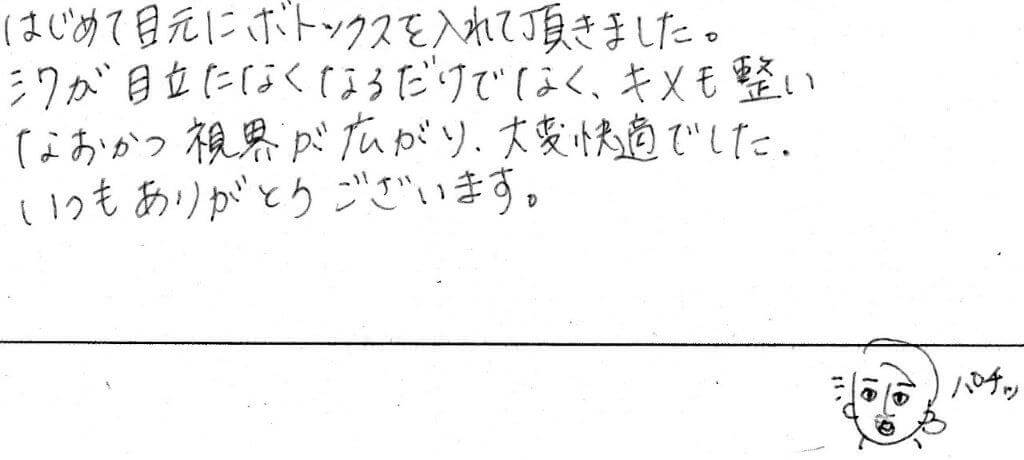 はじめて目元にボトックスを入れて頂きました。
シワが目立たなくなるだけでなく、キメも整い
なおかつ視界が広がり、大変快適でした.
いつもありがとうございます。
パチッ